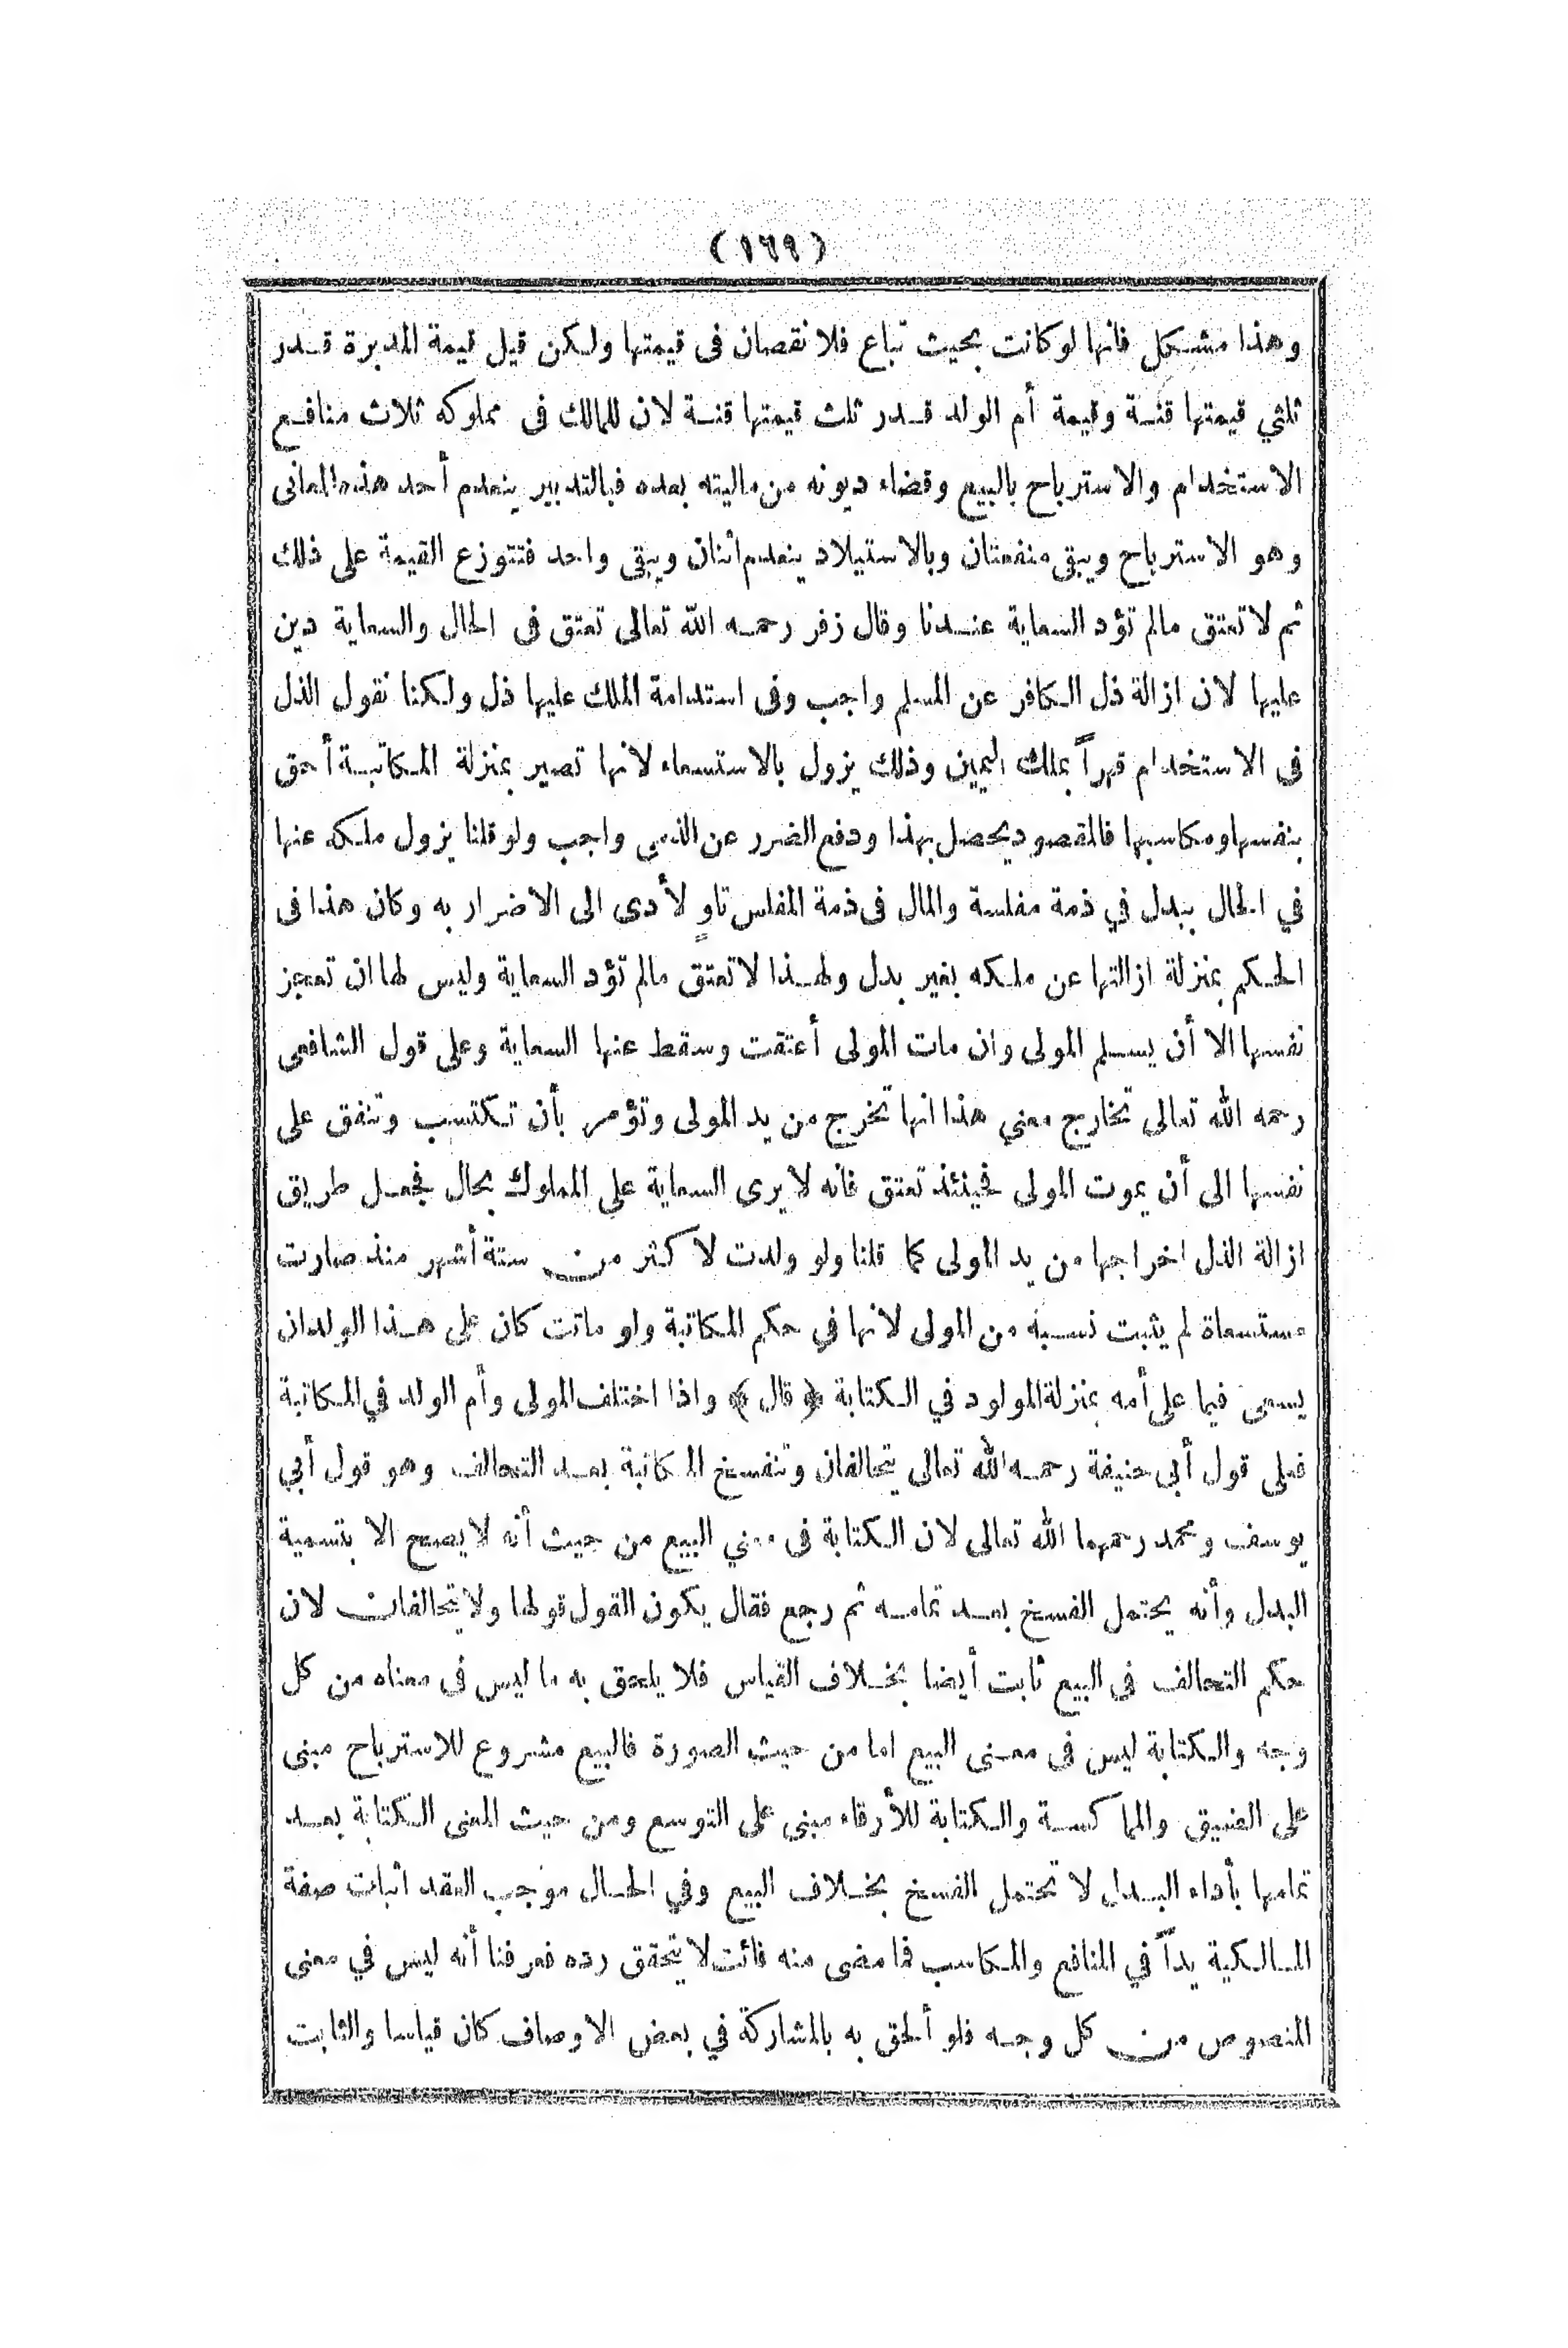 (١٦٩)
وهذا مشكل فانها لو كانت بحيث تباع فلا نقصان فى قيمتها ولكن قيل قيمة المدبرة قدر
ثلثي قيمتها قنة وقيمة أم الولد قدر ثلث قيمتها قنة لان للمالك فى مملوكه ثلاث منافع
الاستخدام والاسترباح بالبيع وقضاء ديونه من ماليته بعده فبالتدبير ينعدم أحد هذه المعانى
وهو الاسترباح ويبقى منفعتان وبالاستيلاد ينعدم اثنان ويبقى واحد فتتوزع القيمة على ذلك
ثم لا تعتق مالم تؤد السعاية عندنا وقال زفر رحمه الله تعالى تعتق فى الحال والسعاية دين
عليها لان ازالة ذل الكافر عن المسلم واجب وفى استدامة الملك عليها ذل ولكنا نقول الذل
فى الاستخدام قهراً بملك اليمين وذلك يزول بالاستسعاء لانها تصير بمنزلة المكاتبة أحق
بنفسها ومكاسبها فالمقصود يحصل بهذا ودفع الضرر عن الذمي واجب ولو قلنا يزول ملكه عنها
في الحال ببدل في ذمة مفلسة والمال فى ذمة المفلس تاوٍ لأدى الى الاضرار به وكان هذا فى
الحكم بمنزلة ازالتها عن ملكه بغير بدل ولهذا لا تعتق مالم تؤد السعاية وليس لها ان تعجز
نفسها الا أن يسلم المولى وان مات المولى أعتقت وسقط عنها السعاية وعلى قول الشافعى
رحمه الله تعالى تخارج معني هذا انها تخرج من يد المولى وتؤمر بأن تكتسب وتنفق على
نفسها الى أن يموت المولى فحينئذ تعتق فانه لا يرى السعاية على المملوك بحال فجعل طريق
ازالة الذل اخراجها من يد المولى كما قلنا ولو ولدت لا كثر من ستة أشهر منذ صارت
مستسعاة لم يثبت نسبه من المولى لانها في حكم المكاتبة ولو ماتت كان على هذا الولد ان
يسعى فيما على أمه بمنزلة المولود في الكتابة ﴿قال﴾ واذا اختلف المولى وأم الولد في المكاتبة
فعلى قول أبى حنيفة رحمه الله تعالى يتحالفان وتنفسخ المكاتبة بعد التحالف وهو قول أبي
يوسف ومحمد رحمهما الله تعالى لان الكتابة فى معني البيع من حيث أنه لا يصح الا بتسمية
البدل وأنه يحتمل الفسخ بعد تمامه ثم رجع فقال يكون القول قولها ولا يتحالفان لان
حكم التحالف فى البيع ثابت أيضا بخلاف القياس فلا يلحق به ما ليس فى معناه من كل
وجه والكتابة ليس فى معنى البيع اما من حيث الصورة فالبيع مشروع للاسترباح مبنى
على الضيق والمماكسة والكتابة للأرقاء مبنى على التوسع ومن حيث المعنى الكتابة بعد
تمامها بأداء البدل لا تحتمل الفسخ بخلاف البيع وفي الحال موجب العقد اثبات صفة
المالكية يداً في المنافع والمكاسب فما مضى منه فائت لا يتحقق رده فعرفنا أنه ليس في معنى
المنصوص من كل وجه فلو ألحق به بالمشاركة في بعض الاوصاف كان قياسا والثابت